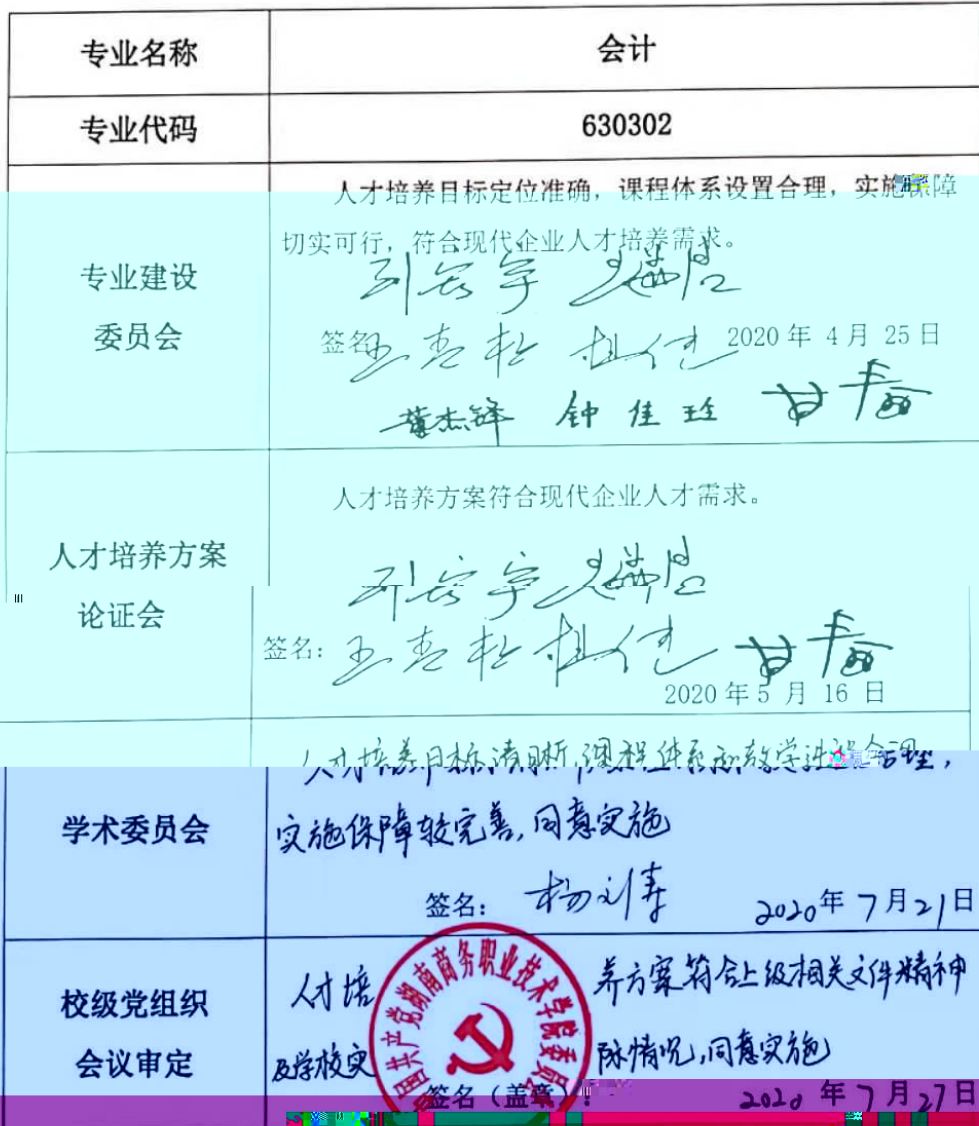 专业名称
会计
专业代码
630302
专业建设
委员会
人才培养目标定位准确，课程体系设置合理，实施保障
切实可行，符合现代企业人才培养需求。
签名
2020年 4月 25日
钟佳玲
人才培养方案
论证会
人才培养方案符合现代企业人才需求。
签名：
2020年5 月 16 日
学术委员会
人才培养目标清晰，课程体系和教学进程合理，
实施保障较完善，同意实施
签名：
2020年7月21日
校级党组织
会议审定
人才培养方案符合上级相关文件精神
及学校实际情况，同意实施
中国共产党湖南商务职业技术学院委员会
签名（盖章）：
2020年7月27日